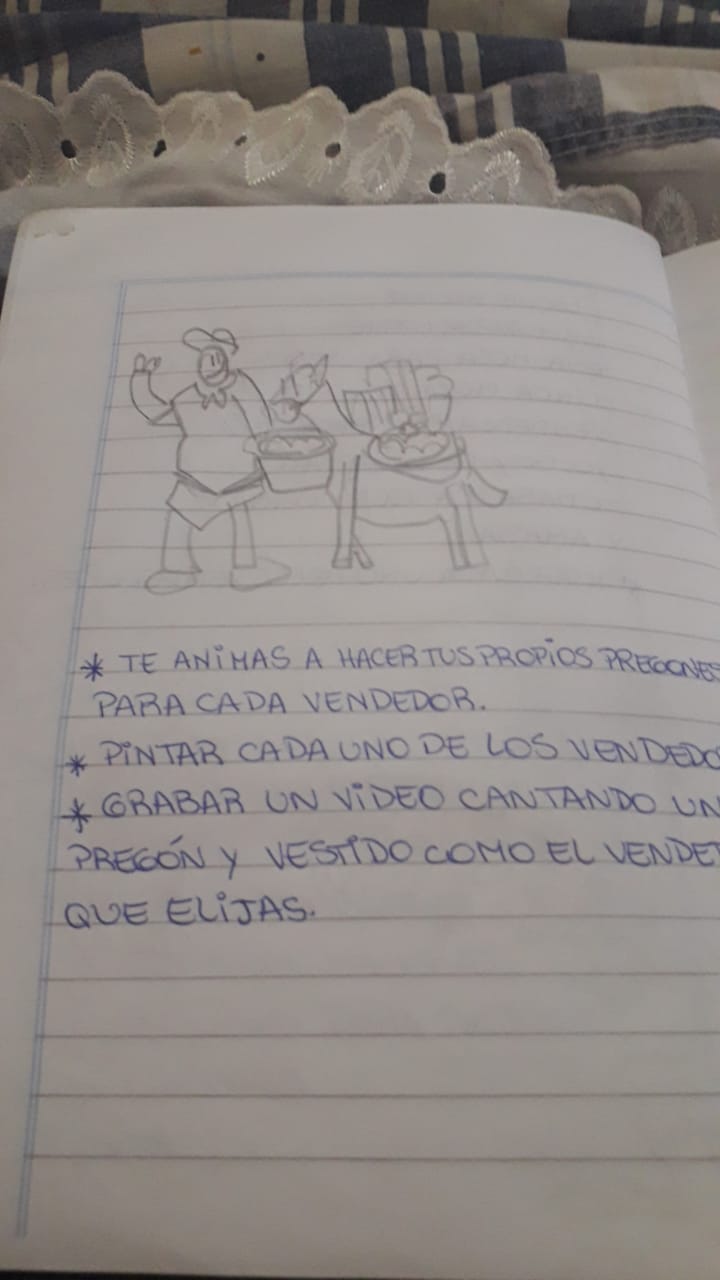 * TE ANIMAS A HACER TUS PROPIOS PREGONES
PARA CADA VENDEDOR.
* PINTAR CADA UNO DE LOS VENDEDO
* GRABAR UN VIDEO CANTANDO UN
PREGÓN Y VESTIDO COMO EL VENDE
QUE ELIJAS.